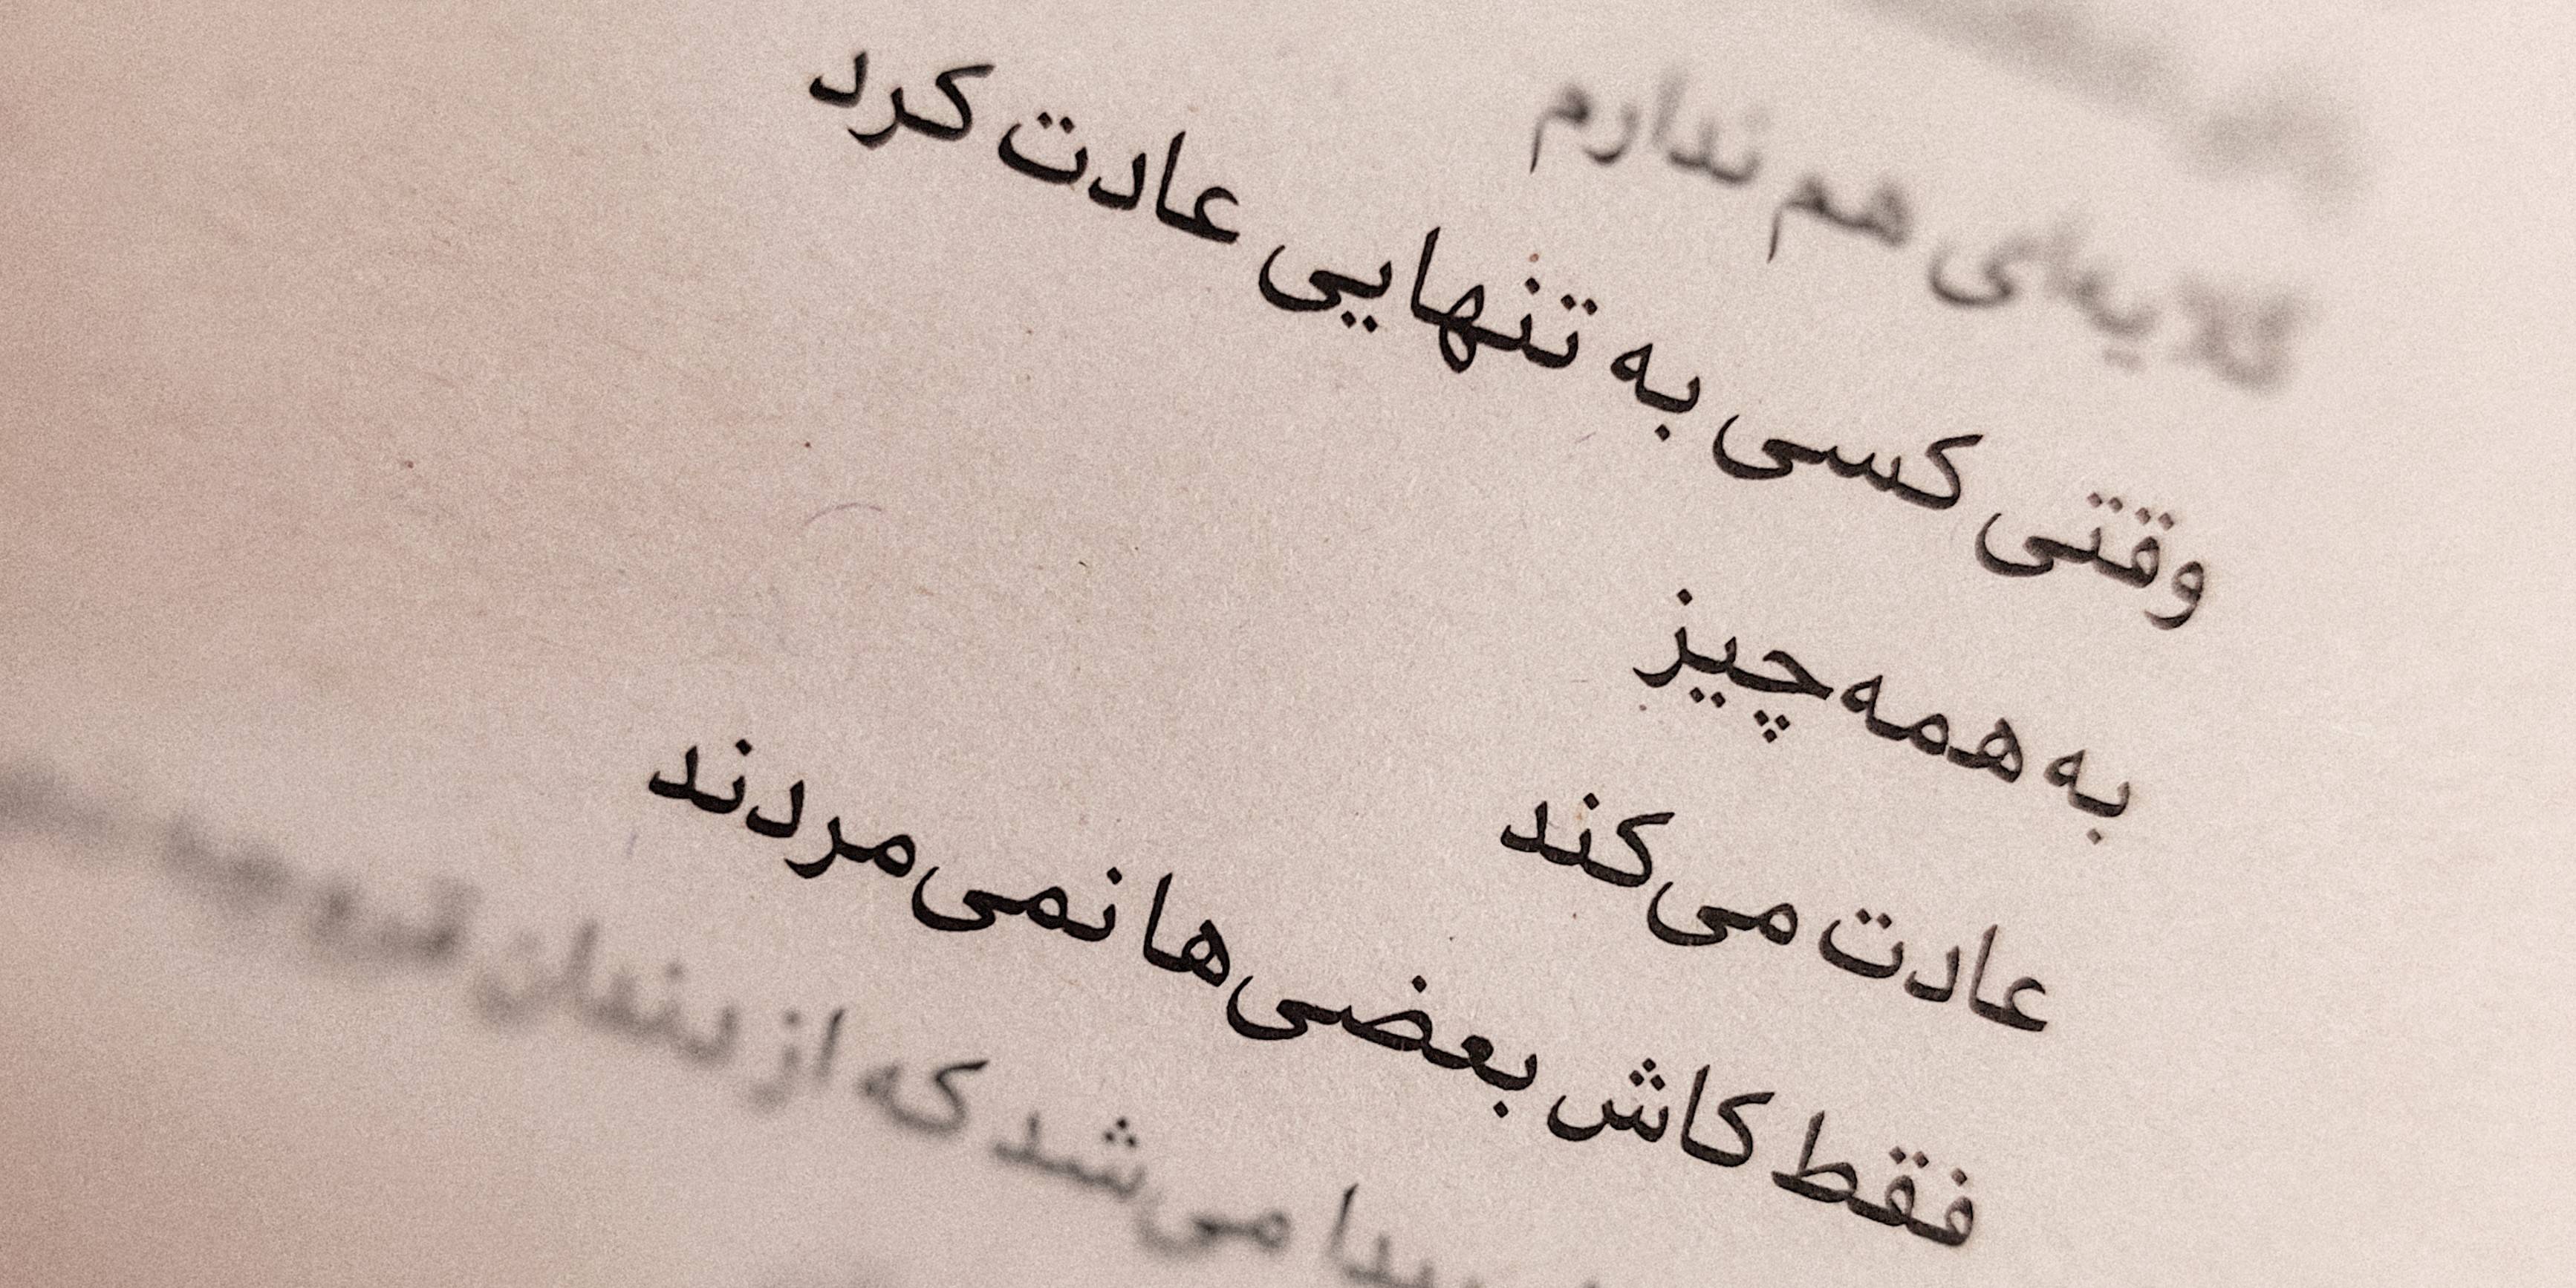 گلایه‌ای هم ندارم
وقتی کسی به تنهایی عادت کرد
به همه‌چیز
عادت می‌کند
فقط کاش بعضی‌ها نمی‌مردند
می‌شد که از دستان